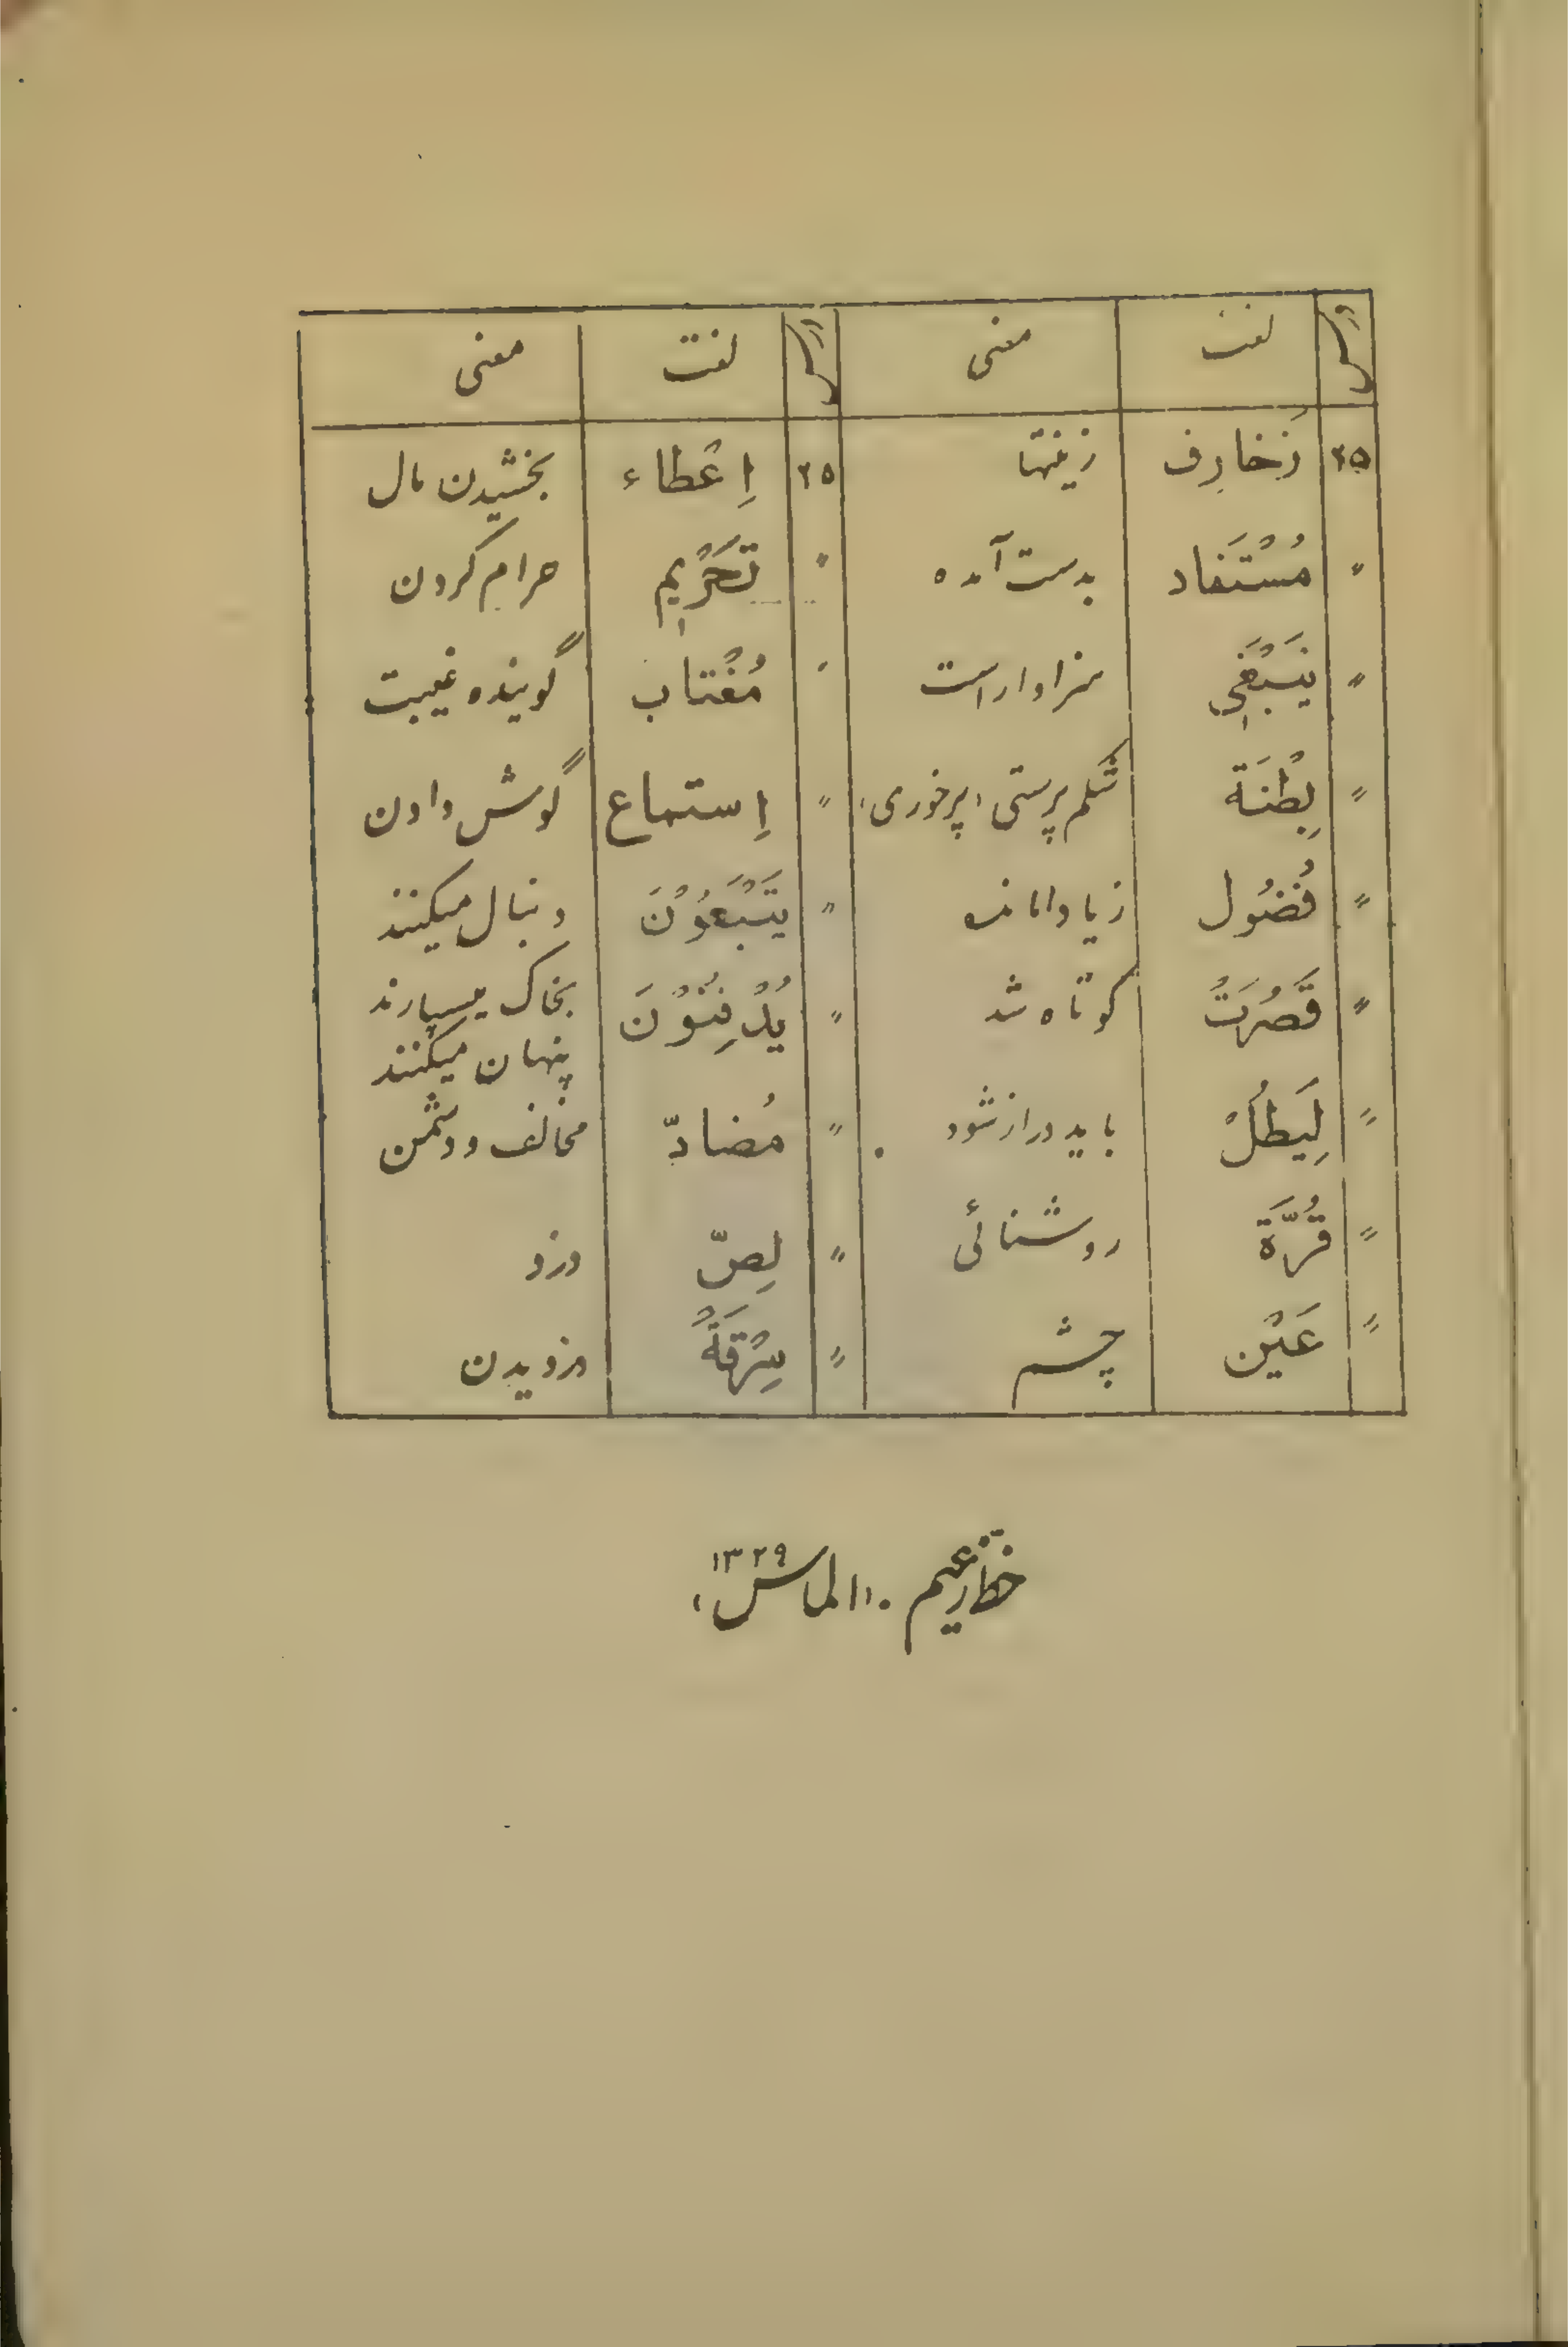 لغت معنی لغت معنی
۲۵ زَخارِف زینتها ۲۵ اِعْطاء بخشیدن مال
" مُسْتَفاد بدست آمده " تَحْرِیم حرام کردن
" یَنْبَغِی سزاوار است " مُغْتاب گوینده غیبت
" بِطْنَة شکم پرستی، پرخوری، " اِستماع گوش دادن
" فُضُول زیاد " یَتَّبِعُوْنَ دنبال میکنند
" قَصُرَتْ کوتاه شد " یُدْفِنُوْنَ بخاک میسپارند
پنهان میکنند
" لِیَطُلْ باید دراز شود " مُضادّ مخالف و دشمن
" قُرَّة روشنائی " لِصّ دزد
" عَیْن چشم " سِرْقَةُ دزدیدن
خط زعیم . الماس، ۱۳۲۹